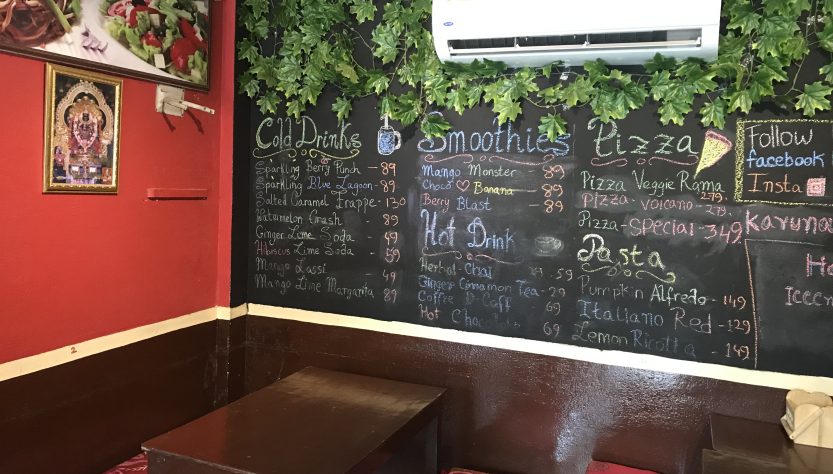 Cold Drinks
Sparkling Berry Punch - 89
Sparkling Blue Lagoon - 89
Salted Caramel Frappe - 130
Watermelon Crush - 89
Ginger Lime Soda - 49
Hibiscus Lime Soda - 59
Mango Lassi - 49
Mango Lime Margarita 89
Smoothies
Mango Monster - 89
Choco Banana - 89
Berry Blast - 89
Hot Drink
Herbal Chai 59
Ginger Cinnamon Tea - 29
Coffee D-Caff 69
Hot 69
Pizza
Pizza Veggie Rama 279.
Pizza - volcano - 279.
Pizza - Special - 349
Pasta
Pumpkin Alfredo - 149
Italiano Red - 129
Lemon Ricotta - 149
Follow
facebook
Insta
Karuna
2